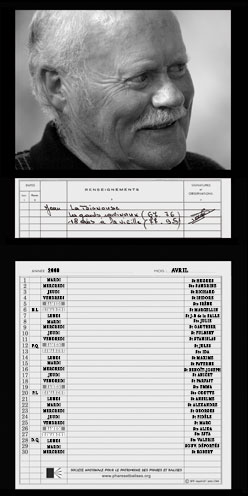 DATES RENSEIGNEMENTS SIGNATURES et OBSERVATIONS
Jean La
les grands cardinaux (67.76)
18 ans à la vieille (77.95)
ANNEE 2008 MOIS AVRIL
1 MARDI St HUGUES
2 MERCREDI Ste SANDRINE
3 JEUDI St RICHARD
4 VENDREDI St ISIDORE
5 SAMEDI Ste IRÈNE
6 N.L. DIMANCHE St MARCELLIN
7 LUNDI St J-B de la SALLE
8 MARDI Ste JULIE
9 MERCREDI St GAUTHIER
10 JEUDI St FULBERT
11 VENDREDI St STANISLAS
12 P.Q. SAMEDI St JULES
13 DIMANCHE Ste IDA
14 LUNDI St MAXIME
15 MARDI St PATERNE
16 MERCREDI St BENOÎT-JOSEPH
17 JEUDI St ANICET
18 VENDREDI St PARFAIT
19 SAMEDI Ste EMMA
20 P.L. DIMANCHE Ste ODETTE
21 LUNDI St ANSELME
22 MARDI St ALEXANDRE
23 MERCREDI St GEORGES
24 JEUDI St FIDÈLE
25 VENDREDI St MARC
26 SAMEDI Ste ALIDA
27 DIMANCHE Ste ZITA
28 D.Q. LUNDI Ste VALERIE
29 MARDI SOUV. DÉPORTÉS
30 MERCREDI St ROBERT
SOCIÉTÉ NATIONALE POUR LE PATRIMOINE DES PHARES ET BALISES
www.pharesetbalises.org